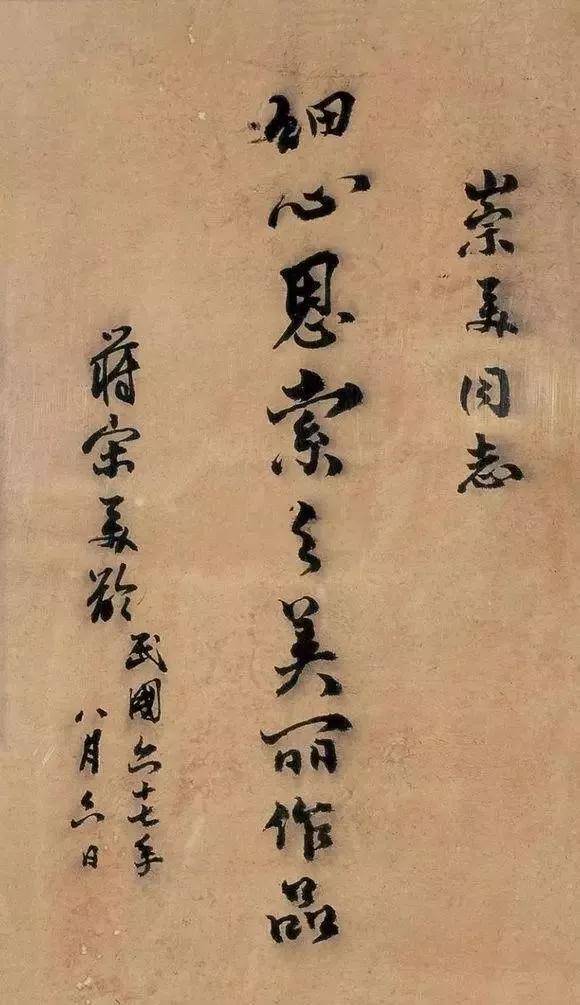 崇美同志
细心思索之美丽作品
蒋宋美龄
民國六十七年
八月六日